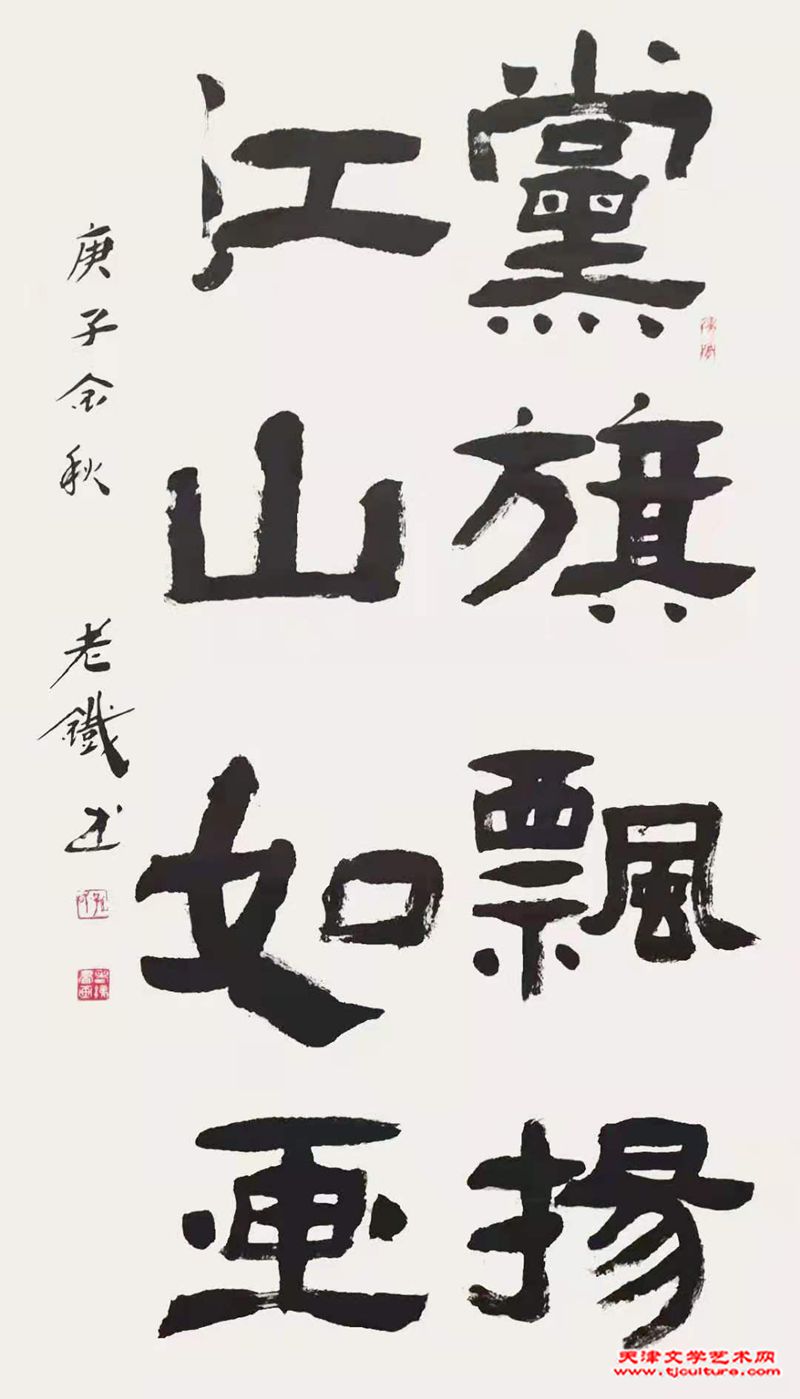 黨旗飄揚
江山如画
庚子金秋 老鐵书
天津文学艺术网
www.tjculture.com